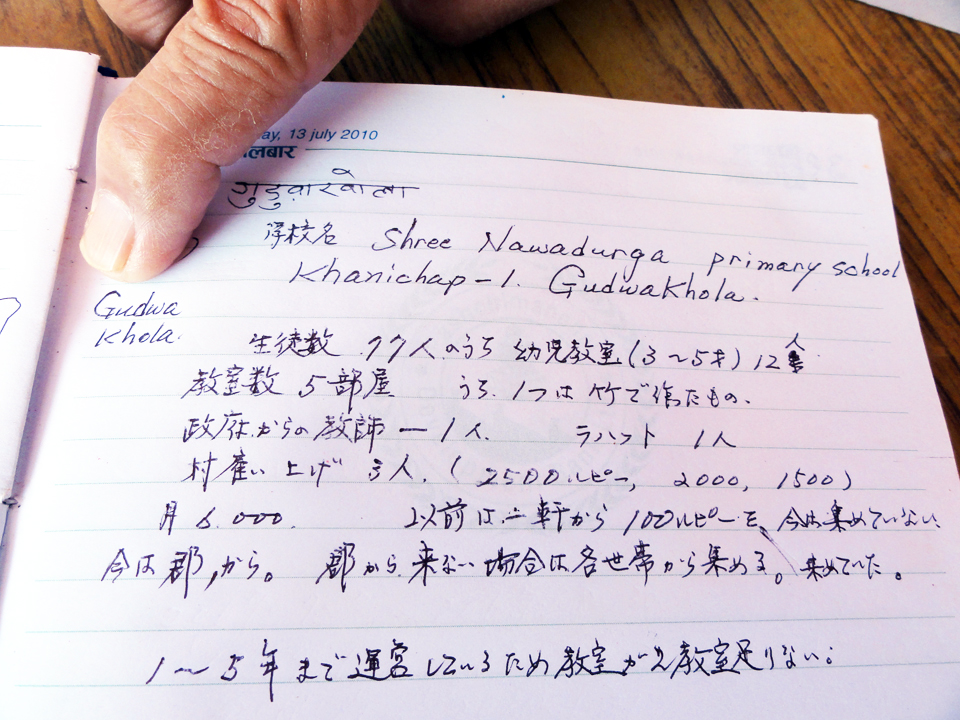 ay, 13 july 2010
लबार
गुडुवाखोला
学校名 Shree Nawadurga primary school
Khanichap-1. GudwaKhola.
Gudwa
Khola.
生徒数 77人のうち 幼児教室(3～5才)12人
教室数 5部屋 うち1つは竹で作たもの、
政府からの教師 ー 1人. ラハット 1人
村雇い上げ 3人. (2500ルピー, 2000, 1500)
月6.000. 以前は一軒から100ルピーを、今は集めていない、
今は郡,から。 郡から来ない場合は各世帯から集める。集めていた。
1～5年まで運営しているため教室が 教室足りない: